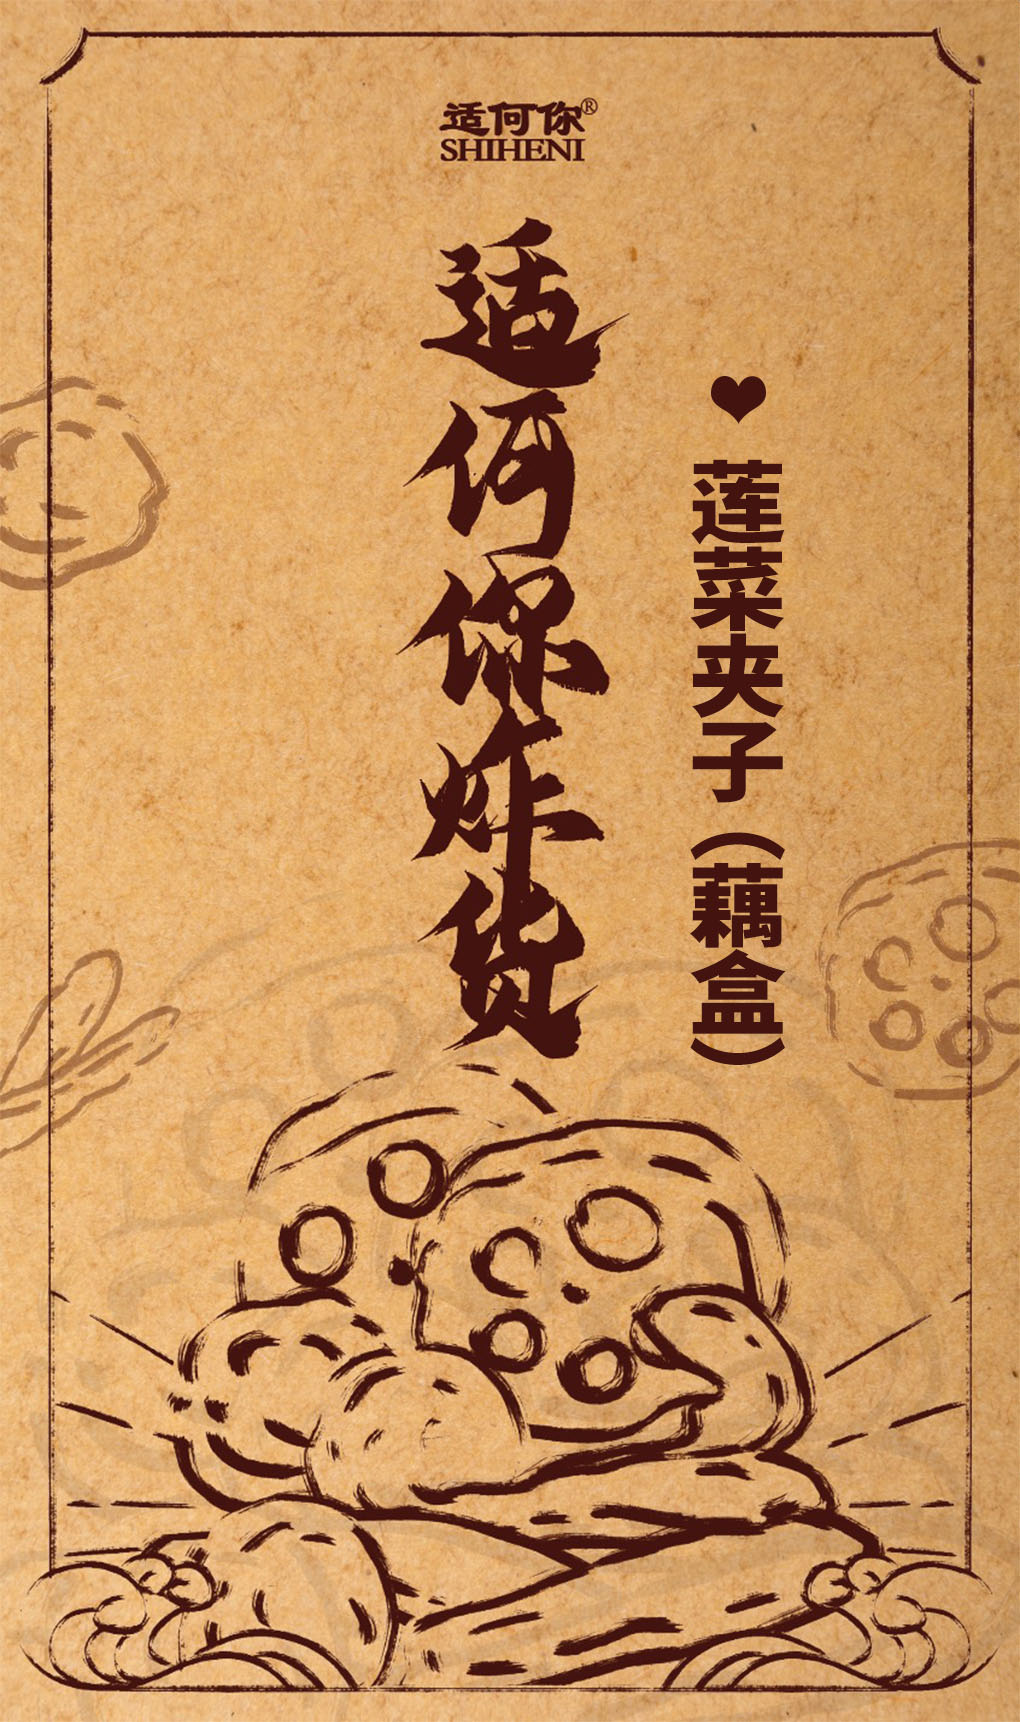 适何你®
SHIHENI
适何你炸货
❤ 莲菜夹子（藕盒）